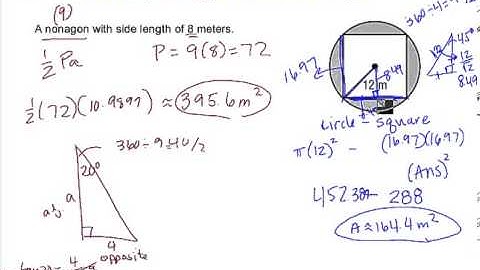 (9)
A nonagon with side length of 8 meters.
1/2 Pa
P = 9(8) = 72
1/2 (72)(10.9897) ≈ 395.6 m²
360 ÷ 9 = 40/2
20°
a
adj
4
opposite
16.97
12 m
8.49
45°
12/√2
8.49
circle - square
π(12)² - (16.97)(16.97)
(Ans)²
452.39 - 288
A ≈ 164.4 m²